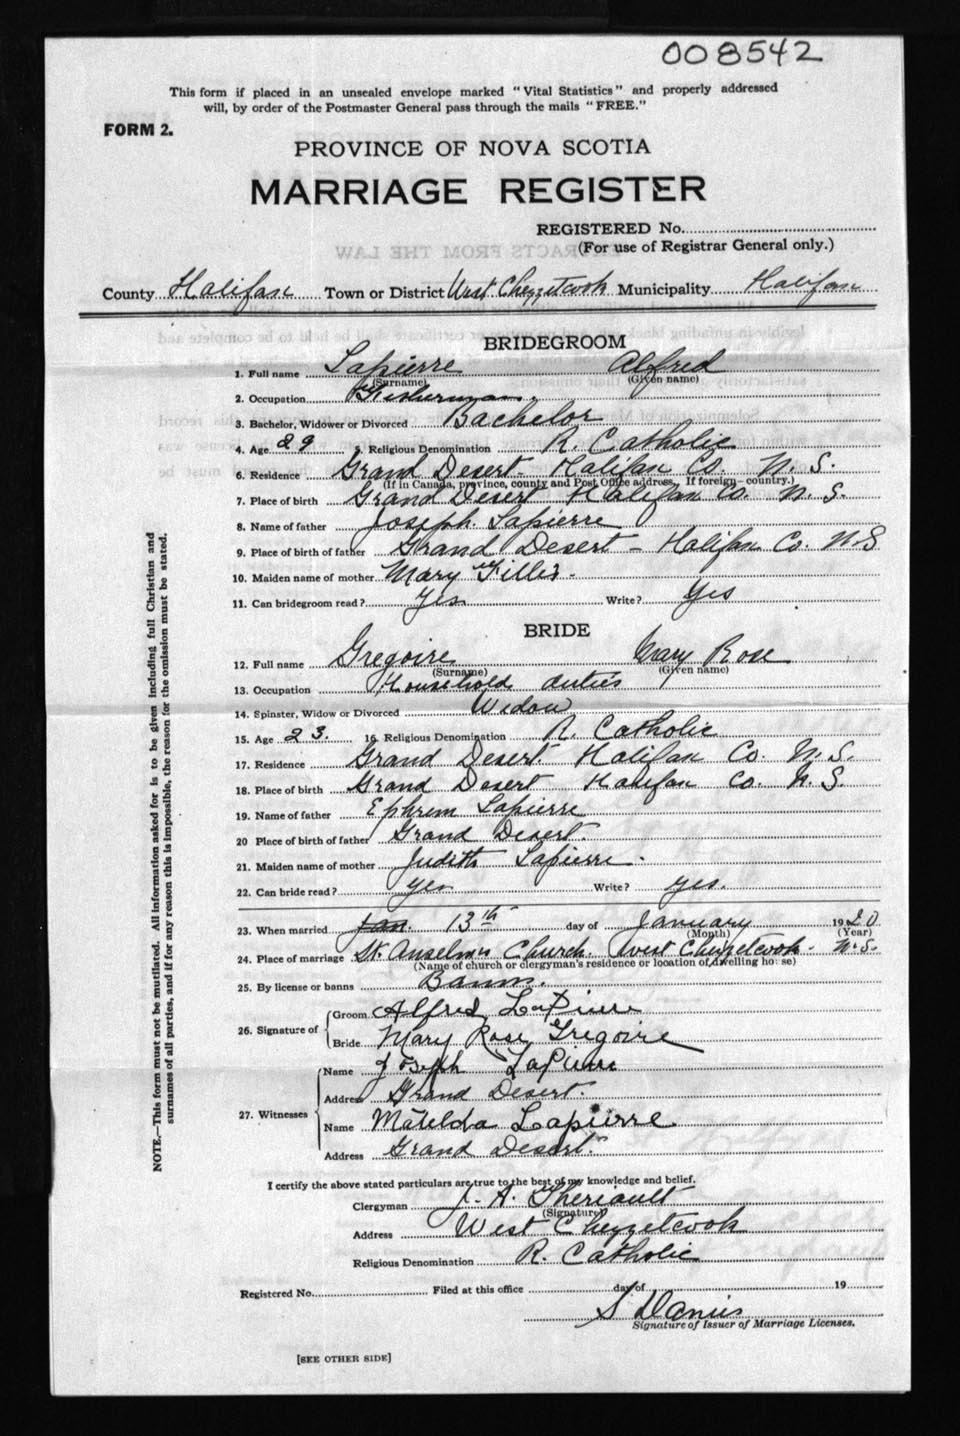 008542
This form if placed in an unsealed envelope marked "Vital Statistics" and properly addressed
will, by order of the Postmaster General pass through the mails "FREE."
FORM 2.
PROVINCE OF NOVA SCOTIA
MARRIAGE REGISTER
REGISTERED No.
(For use of Registrar General only.)
EXTRACTS FROM THE LAW
County Halifax Town or District West Chezzetcook Municipality Halifax
BRIDEGROOM
1. Full name Lapierre Alfred
(Surname) (Given name)
2. Occupation Fisherman
3. Bachelor, Widower or Divorced Bachelor
4. Age 29 5. Religious Denomination R. Catholic
6. Residence Grand Desert - Halifax Co. N. S.
(If in Canada, province, county and Post Office address. If foreign—country.)
7. Place of birth Grand Desert Halifax Co. N. S.
8. Name of father Joseph Lapierre
9. Place of birth of father Grand Desert - Halifax Co. N.S
10. Maiden name of mother Mary Fillis.
11. Can bridegroom read? Yes Write? Yes
BRIDE
12. Full name Gregoire Mary Rose
(Surname) (Given name)
13. Occupation Household duties
14. Spinster, Widow or Divorced Widow
15. Age 23. 16. Religious Denomination R. Catholic
17. Residence Grand Desert. Halifax Co. N. S.
18. Place of birth Grand Desert Halifax Co. N. S.
19. Name of father Ephrem Lapierre
20 Place of birth of father Grand Desert
21. Maiden name of mother Judith Lapierre.
22. Can bride read? yes Write? yes.
23. When married Jan. 13th day of January 1920
(Month) (Year)
24. Place of marriage St. Anselm's Church. West Chezzetcook - N.S.
(Name of church or clergyman's residence or location of dwelling house)
25. By license or banns Banns.
26. Signature of Groom Alfred LaPierre
Bride Mary Rose Gregoire
27. Witnesses Name Joseph LaPierre
Address Grand Desert.
Name Matilda Lapierre
Address Grand Desert.
I certify the above stated particulars are true to the best of my knowledge and belief.
Clergyman J. A. Theriault
(Signature)
Address West Chezzetcook
Religious Denomination R. Catholic
Registered No. Filed at this office day of 19
Signature of Issuer of Marriage Licenses.
[SEE OTHER SIDE]
NOTE.—This form must not be mutilated. All information asked for is to be given including full Christian and
surnames of all parties, and if for any reason this is impossible, the reason for the omission must be stated.